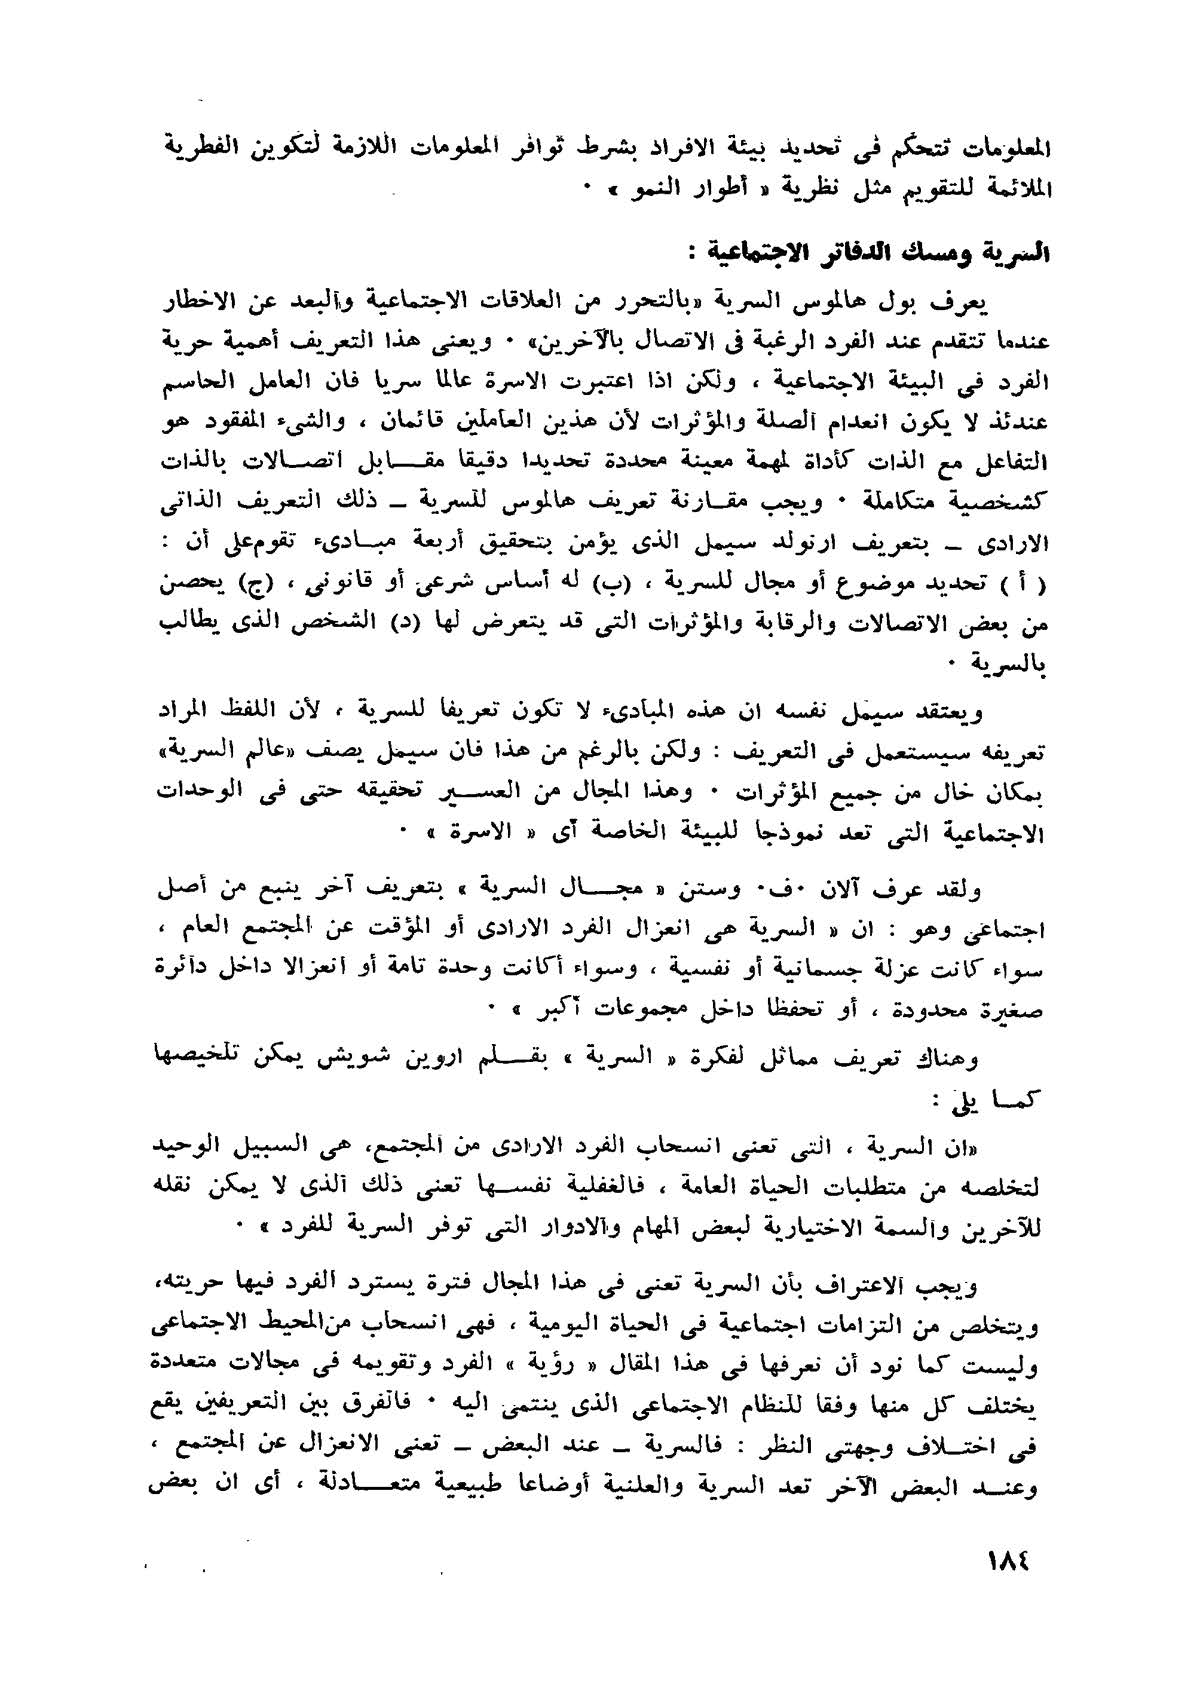 المعلومات تتحكم فى تحديد بيئة الافراد بشرط توافر المعلومات اللازمة لتكوين الفطرية
الملائمة للتقويم مثل نظرية « أطوار النمو » ٠
السرية ومسك الدفاتر الاجتماعية :
يعرف بول هالموس السرية «بالتحرر من العلاقات الاجتماعية والبعد عن الاخطار
عندما تتقدم عند الفرد الرغبة فى الاتصال بالآخرين» ٠ ويعنى هذا التعريف أهمية حرية
الفرد فى البيئة الاجتماعية ، ولكن اذا اعتبرت الاسرة عالما سريا فان العامل الحاسم
عندئذ لا يكون انعدام الصلة والمؤثرات لأن هذين العاملين قائمان ، والشىء المفقود هو
التفاعل مع الذات كأداة لمهمة معينة محددة تحديدا دقيقا مقـابل اتصـالات بالذات
كشخصية متكاملة ٠ ويجب مقـارنة تعريف هالموس للسرية ـ ذلك التعريف الذاتى
الارادى ـ بتعريف ارنولد سيمل الذى يؤمن بتحقيق أربعة مبـادىء تقوم على أن :
( أ ) تحديد موضوع أو مجال للسرية ، (ب) له أساس شرعى أو قانونى ، (ج) يحصن
من بعض الاتصالات والرقابة والمؤثرات التى قد يتعرض لها (د) الشخص الذى يطالب
بالسرية ٠
ويعتقد سيمل نفسه ان هذه المبادىء لا تكون تعريفا للسرية ، لأن اللفظ المراد
تعريفه سيستعمل فى التعريف : ولكن بالرغم من هذا فان سيمل يصف «عالم السرية»
بمكان خال من جميع المؤثرات ٠ وهذا المجال من العسـير تحقيقه حتى فى الوحدات
الاجتماعية التى تعد نموذجا للبيئة الخاصة أى « الاسرة » ٠
ولقد عرف آلان ٠ف٠ وستن « مجـال السرية » بتعريف آخر ينبع من أصل
اجتماعى وهو : ان « السرية هى انعزال الفرد الارادى أو المؤقت عن المجتمع العام ،
سواء كانت عزلة جسمانية أو نفسية ، وسواء أكانت وحدة تامة أو انعزالا داخل دائرة
صغيرة محدودة ، أو تحفظا داخل مجموعات أكبر » ٠
وهناك تعريف مماثل لفكرة « السرية » بقـلم اروين شويش يمكن تلخيصها
كمـا يلى :
«ان السرية ، التى تعنى انسحاب الفرد الارادى من المجتمع، هى السبيل الوحيد
لتخلصه من متطلبات الحياة العامة ، فالغفلية نفسـها تعنى ذلك الذى لا يمكن نقله
للآخرين والسمة الاختيارية لبعض المهام والادوار التى توفر السرية للفرد » ٠
ويجب الاعتراف بأن السرية تعنى فى هذا المجال فترة يسترد الفرد فيها حريته،
ويتخلص من التزامات اجتماعية فى الحياة اليومية ، فهى انسحاب من المحيط الاجتماعى
وليست كما نود أن نعرفها فى هذا المقال « رؤية » الفرد وتقويمه فى مجالات متعددة
يختلف كل منها وفقا للنظام الاجتماعى الذى ينتمى اليه ٠ فالفرق بين التعريفين يقع
فى اختـلاف وجهتى النظر : فالسرية ـ عند البعض ـ تعنى الانعزال عن المجتمع ،
وعنـد البعض الآخر تعد السرية والعلنية أوضاعا طبيعية متعـادلة ، أى ان بعض
١٨٤